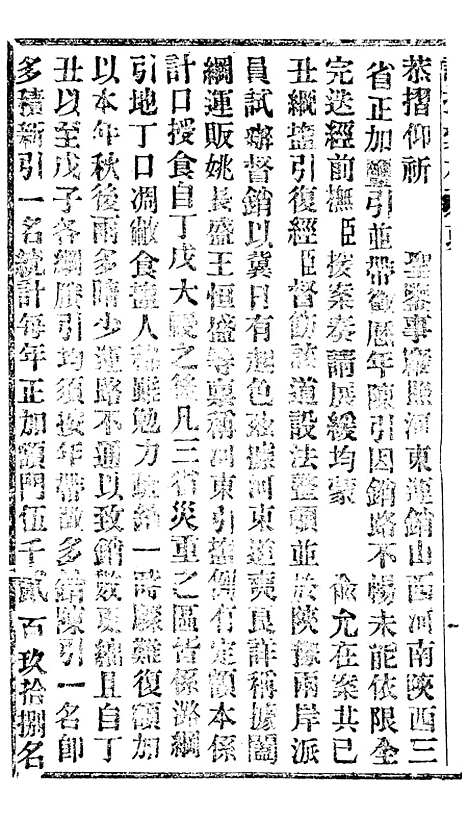 恭摺仰祈　聖鑒事竊照河東運銷山西河南陝西三
省正加鹽引並帶徵歷年陳引因銷路不暢未能依限全
完迭經前撫臣援案奏請展緩均蒙　俞允在案其己
丑綱鹽引復經臣督飭該道設法整頓並於陝豫兩岸派
員試辦督銷以冀日有起色茲據河東道奭良詳稱據闔
綱運販姚長盛王恒盛等稟稱河東引鹽例有定額本係
計口授食自丁戊大祲之後凡三省災重之區皆係潞綱
引地丁口凋敝食鹽人稀雖勉力疏銷一時驟難復額加
以本年秋後雨多晴少運路不通以致銷數更絀且自丁
丑以至戊子各綱賸引均須按年帶徵多銷陳引一名卽
多積新引一名統計每年正加額門伍千貳百玖拾捌名